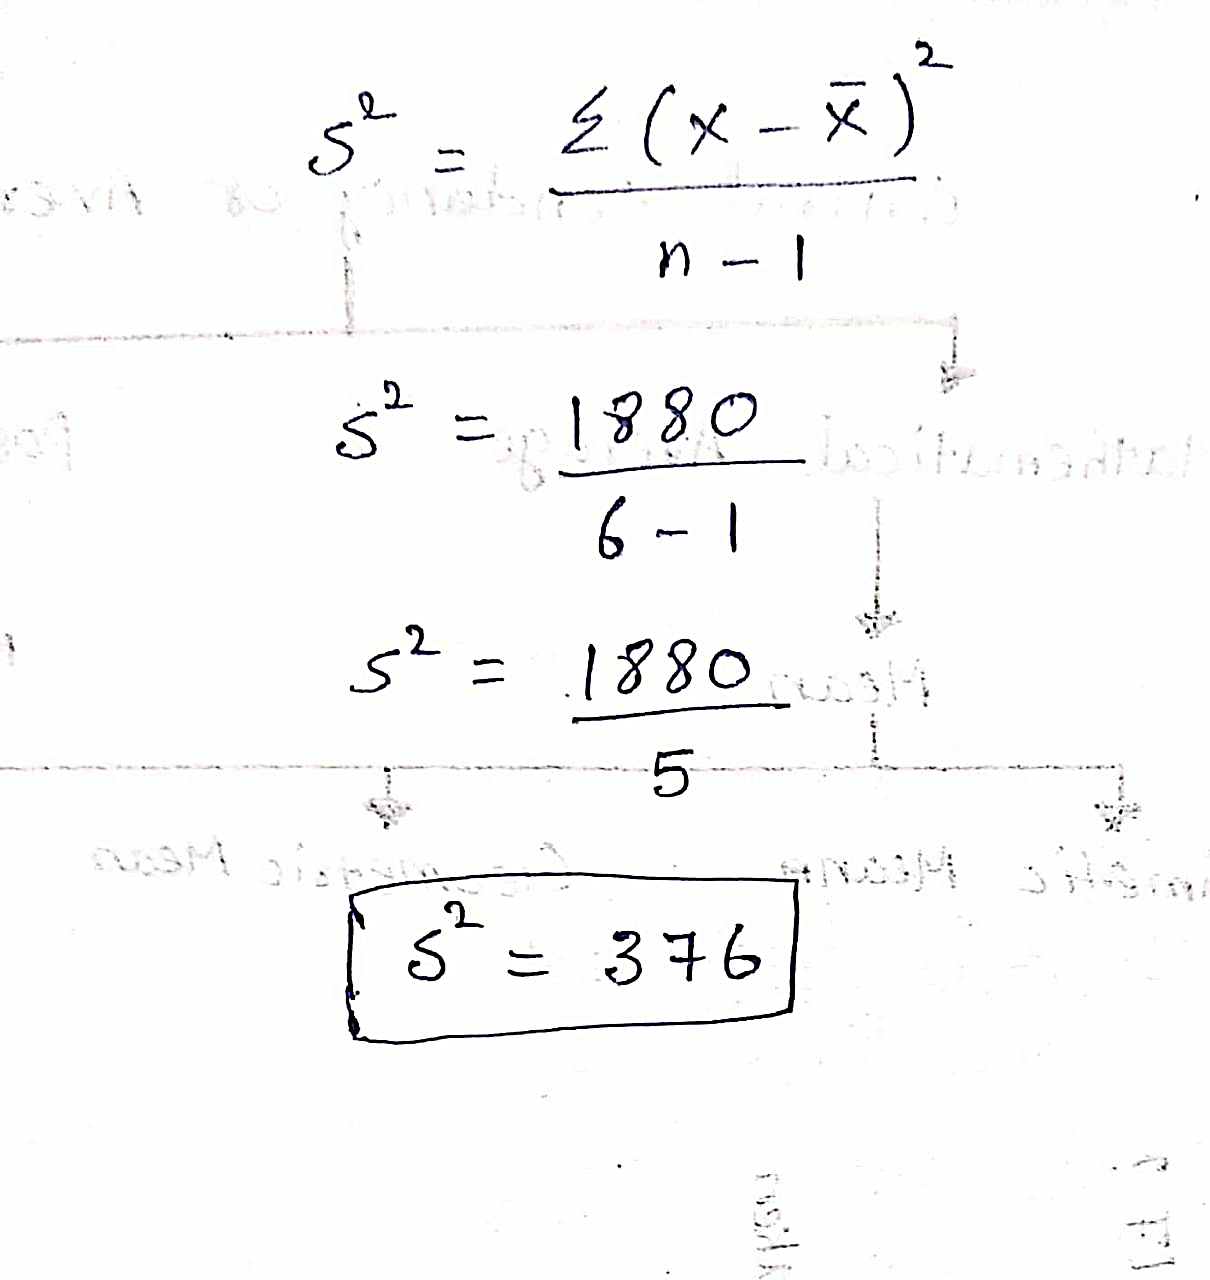 s² = Σ(x - x̄)²
n - 1
s² = 1880
6 - 1
s² = 1880
5
s² = 376